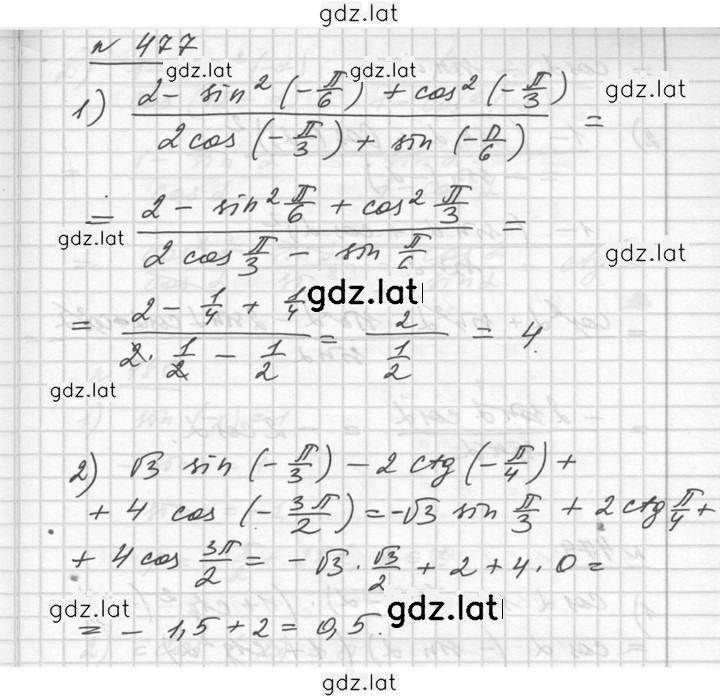 gdz.lat
№ 477
gdz.lat gdz.lat gdz.lat
1) (2 - sin²(-π/6) + cos²(-π/3)) / (2cos(-π/3) + sin(-π/6)) =
= (2 - sin² π/6 + cos² π/3) / (2cos π/3 - sin π/6) =
gdz.lat gdz.lat
gdz.lat
= (2 - 1/4 + 1/4) / (2 · 1/2 - 1/2) = 2 / (1/2) = 4.
gdz.lat
2) √3 sin(-π/3) - 2ctg(-π/4) +
gdz.lat
+ 4 cos(-3π/2) = -√3 sin π/3 + 2ctg π/4 +
+ 4cos 3π/2 = -√3 · √3/2 + 2 + 4 · 0 =
gdz.lat gdz.lat gdz.lat
= - 1,5 + 2 = 0,5.
gdz.lat